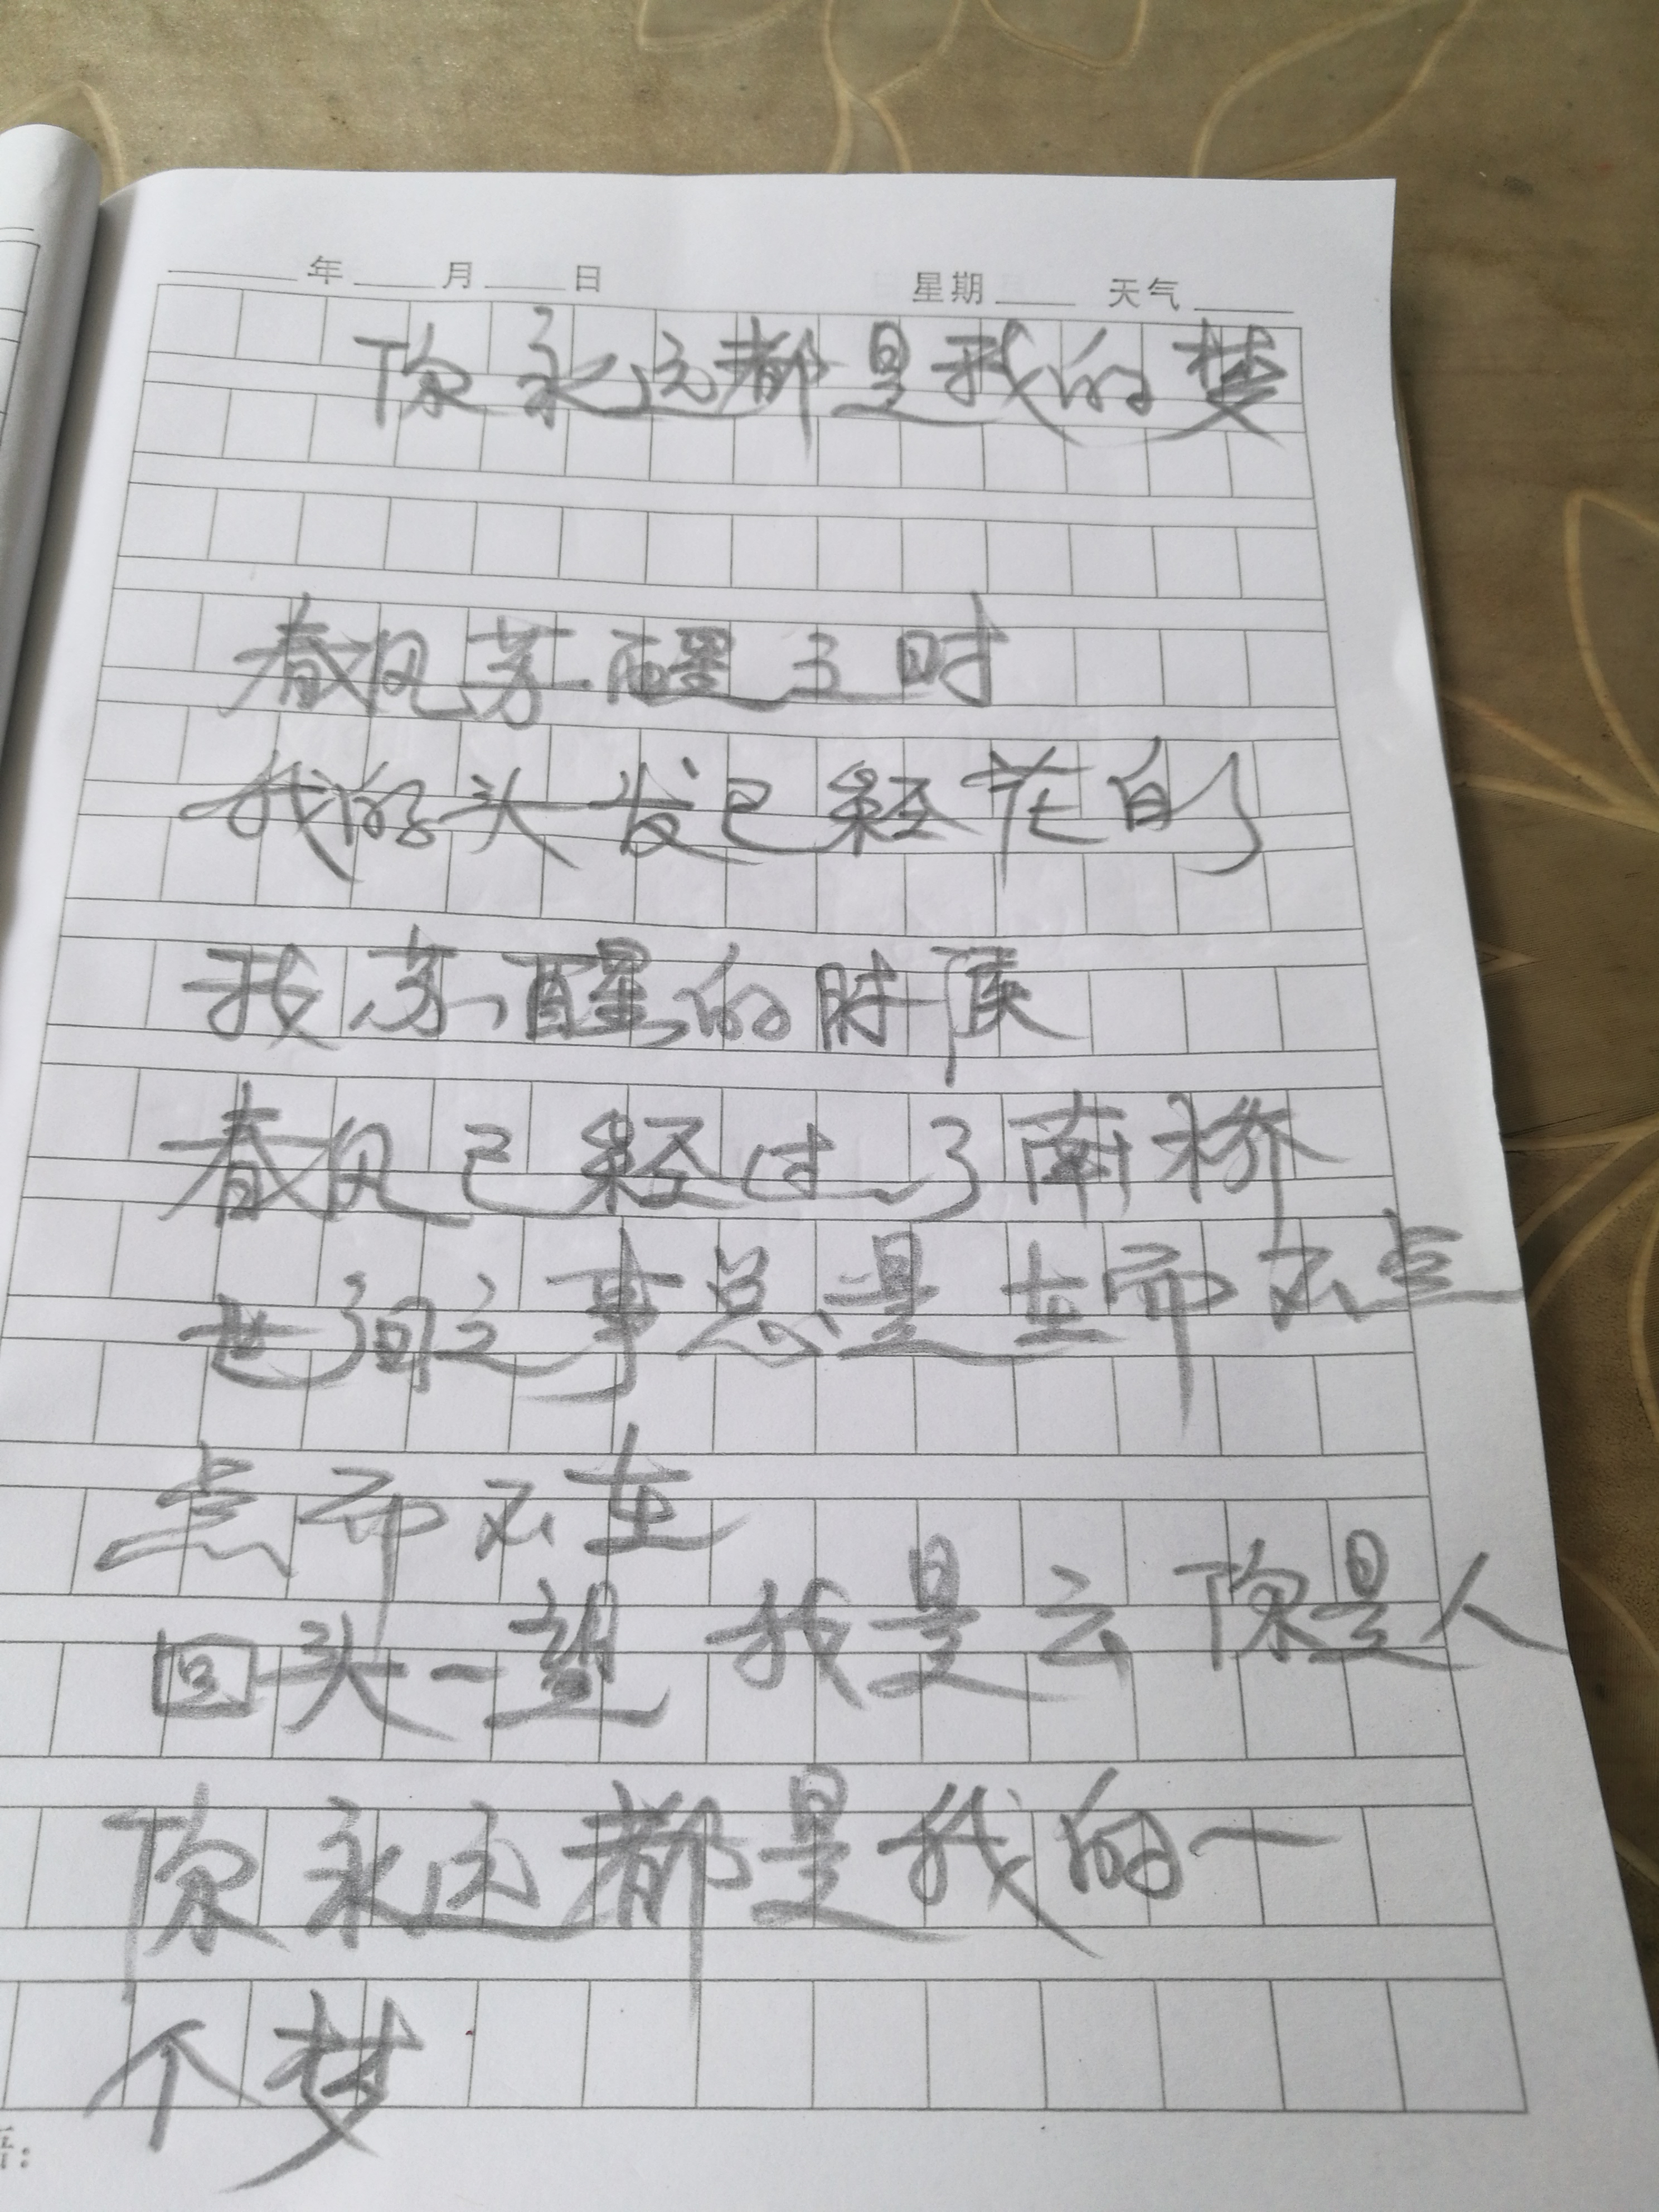 年 月 日 星期 天气
你永远都是我的梦
春风苏醒了时
我的头发已经花白了
我苏醒的时候
春风已经过了南桥
世间之事总是在而不点
点而不在
回头一望 我是云 你是人
你永远都是我的一
个梦